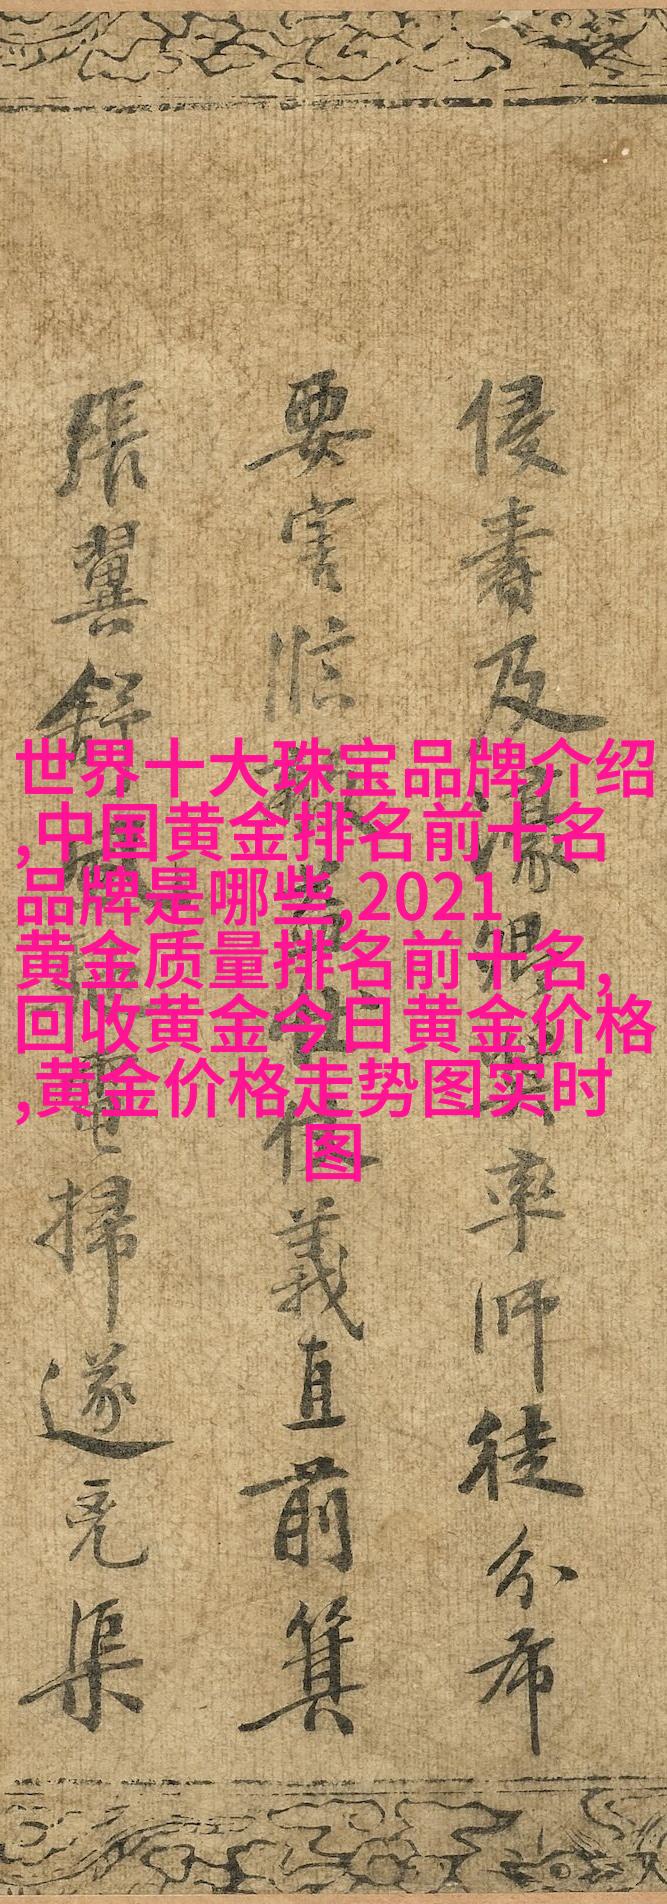 世界十大珠宝品牌介绍
,中国黄金排名前十名
品牌是哪些,2021
黄金质量排名前十名,
回收黄金今日黄金价格
,黄金价格走势图实时
图
侵書及濠卿率師徒分布
要害臨敵世仗義直前箕
張翼舒電掃遂克渠